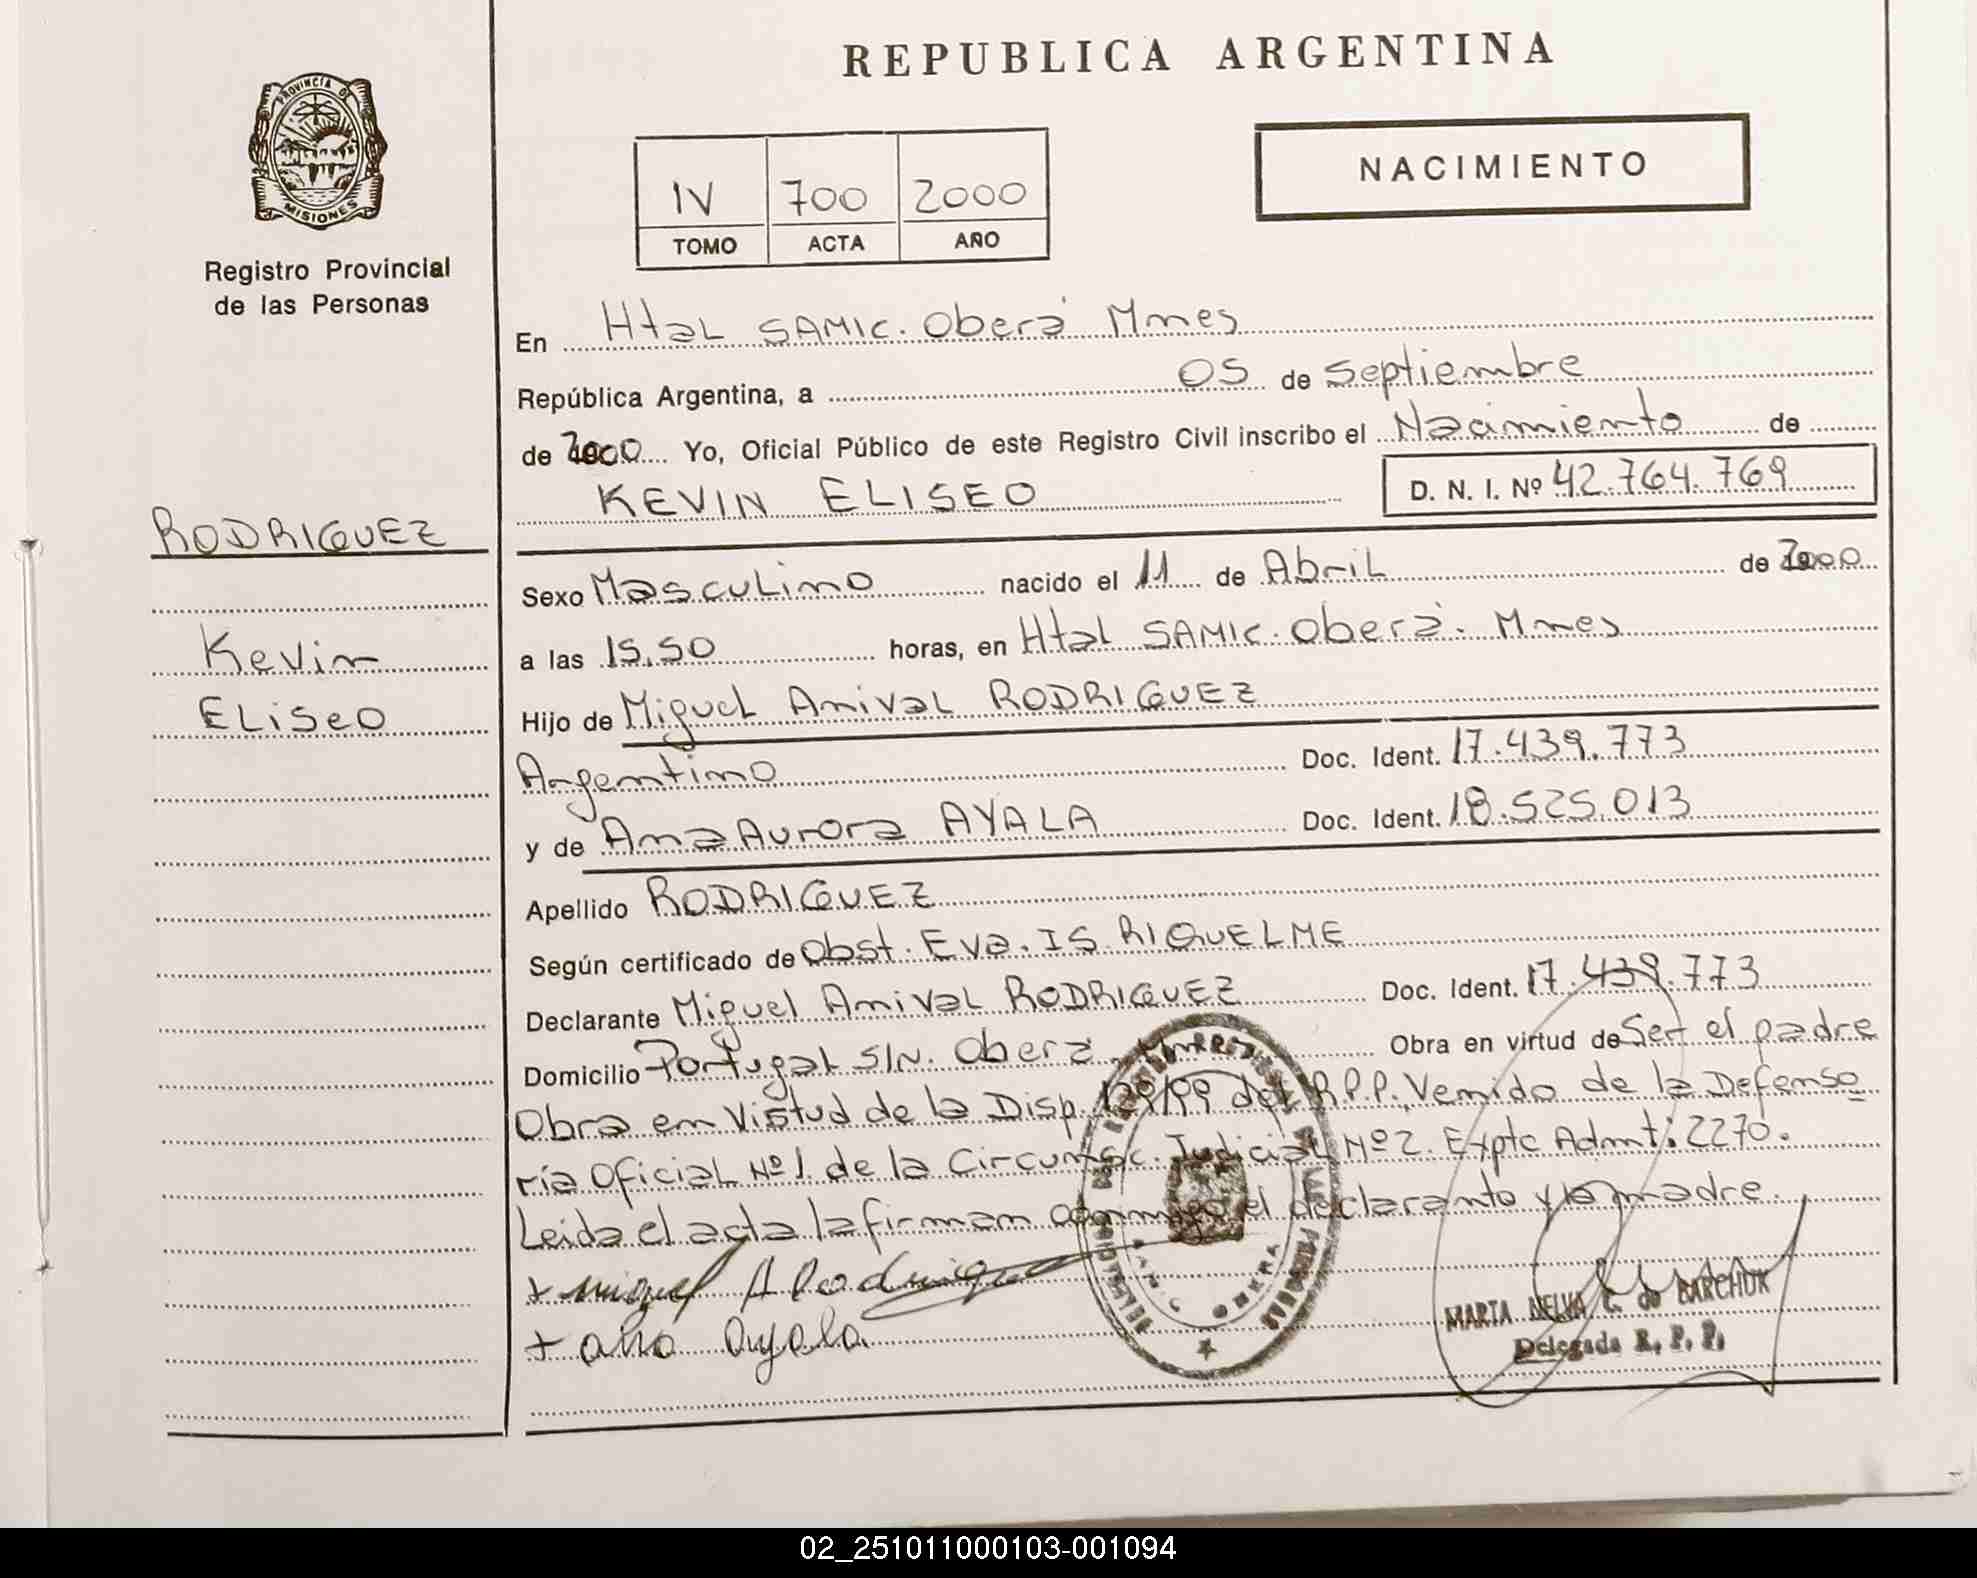 REPUBLICA ARGENTINA
PROVINCIA DE
MISIONES
Registro Provincial
de las Personas
IV 700 2000
TOMO ACTA AÑO
NACIMIENTO
En Htal SAMIC. Oberá Mnes
República Argentina, a 05 de Septiembre
de 2000 Yo, Oficial Público de este Registro Civil inscribo el Nacimiento de
KEVIN ELISEO D. N. I. Nº 42.764.769
RODRIGUEZ
Kevin
ELiSeO
Sexo Masculino nacido el 11 de Abril de 2000
a las 15.50 horas, en Htal SAMIC. Oberá. Mnes
Hijo de Miguel Anival RODRIGUEZ
Argentino Doc. Ident. 17.439.773
y de Ana Aurora AYALA Doc. Ident. 18.525.013
Apellido RODRIGUEZ
Según certificado de Obst. Eva. IS. RIQUELME
Declarante Miguel Anival RODRIGUEZ Doc. Ident. 17.439.773
Domicilio Portugal S/N. Oberá Obra en virtud de Ser el padre
Obra en Vistud de la Disp. 129/99 del R.P.P. Venido de la Defenso
ría Oficial Nº 1. de la Circunsc. Judicial Nº 2. Expte Admt: 2270.
Leida el acta la firman conmigo el declarante y la madre.
+ Miguel A Rodriguez
+ Ana Ayala
OBERA
MARTA NELVA C. de BARCHUK
Delegada R. P. P.
02_251011000103-001094